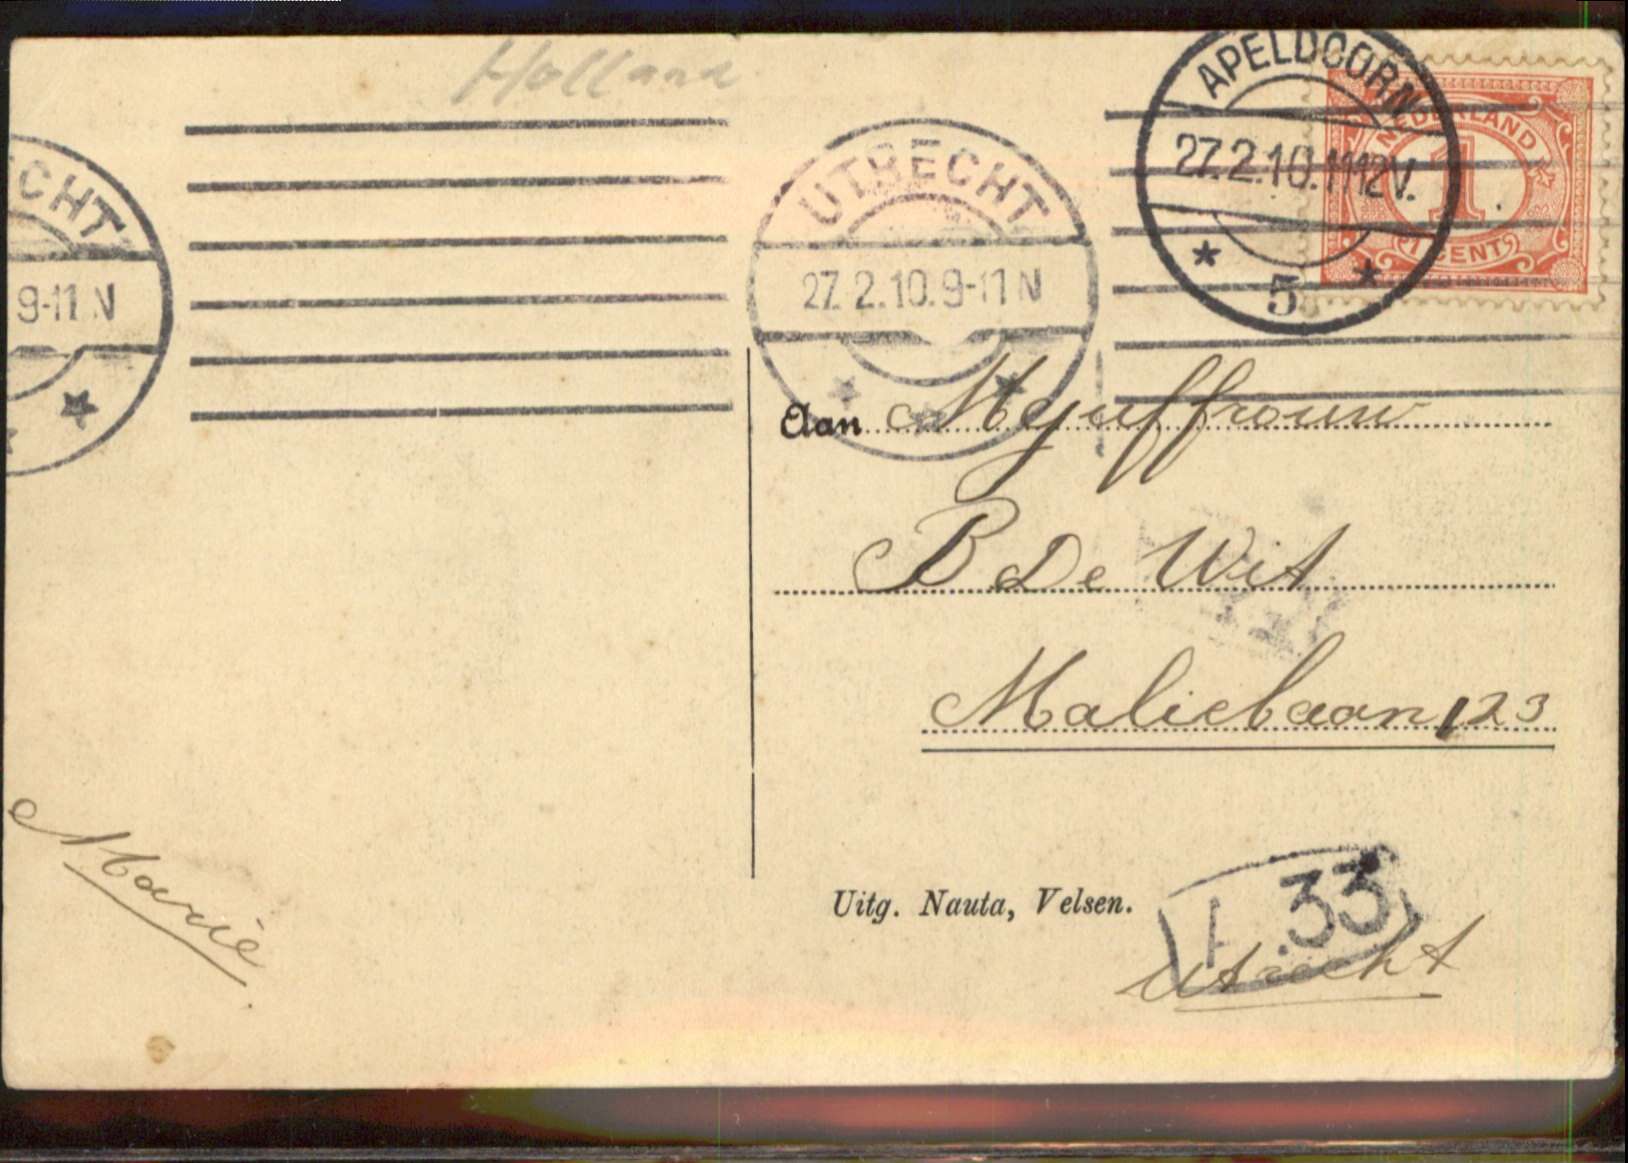 Holland
CHT
9-11 N
UTRECHT
27.2.10.9-11 N
APELDOORN
27.2.10.11-12V.
5
NEDERLAND
1
1 CENT
Aan Mejuffrouw
B De Wit
Maliebaan 123
Utrecht
Uitg. Nauta, Velsen.
33
Marie